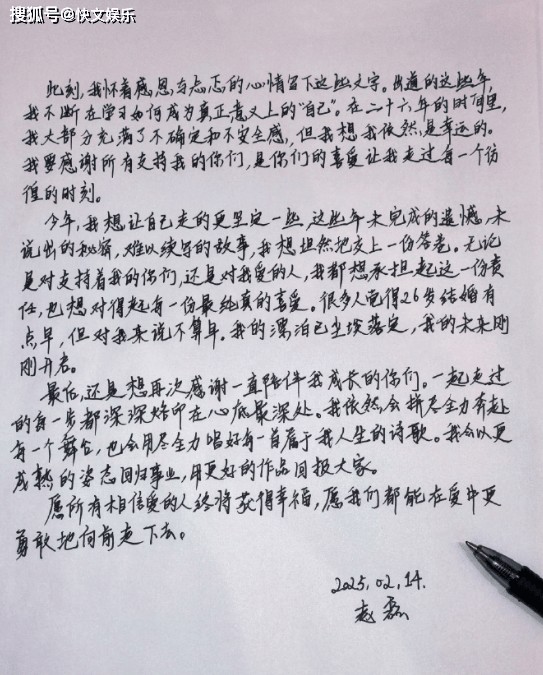 搜狐号@快文娱乐
此刻，我怀着感恩与忐忑的心情留下这些文字。出道的这些年，
我不断在学习如何成为真正意义上的“自己”。在二十六年的时间里，
我大部分充满了不确定和不安全感，但我想我依然是幸运的。
我要感谢所有支持我的你们，是你们的喜爱让我走过每一个彷
徨的时刻。
今年，我想让自己走的更坚定一些，这些年未完成的遗憾，未
说出的秘密，难以续写的故事，我想坦然地交上一份答卷。无论
是对支持着我的你们，还是对我爱的人，我都想承担起这一份责
任，也想对得起每一份最纯真的喜爱。很多人觉得26岁结婚有
点早，但对我来说不算早。我的漂泊已尘埃落定，我的未来刚
刚开启。
最后，还是想再次感谢一直陪伴我成长的你们。一起走过
的每一步都深深烙印在心底最深处。我依然会拼尽全力奔赴
每一个舞台，也会用尽全力唱好每一首属于我人生的诗歌。我会以更
成熟的姿态回归事业，用更好的作品回报大家。
愿所有相信爱的人终将获得幸福，愿我们都能在爱中更
勇敢地向前走下去。
2025.02.14.
赵磊